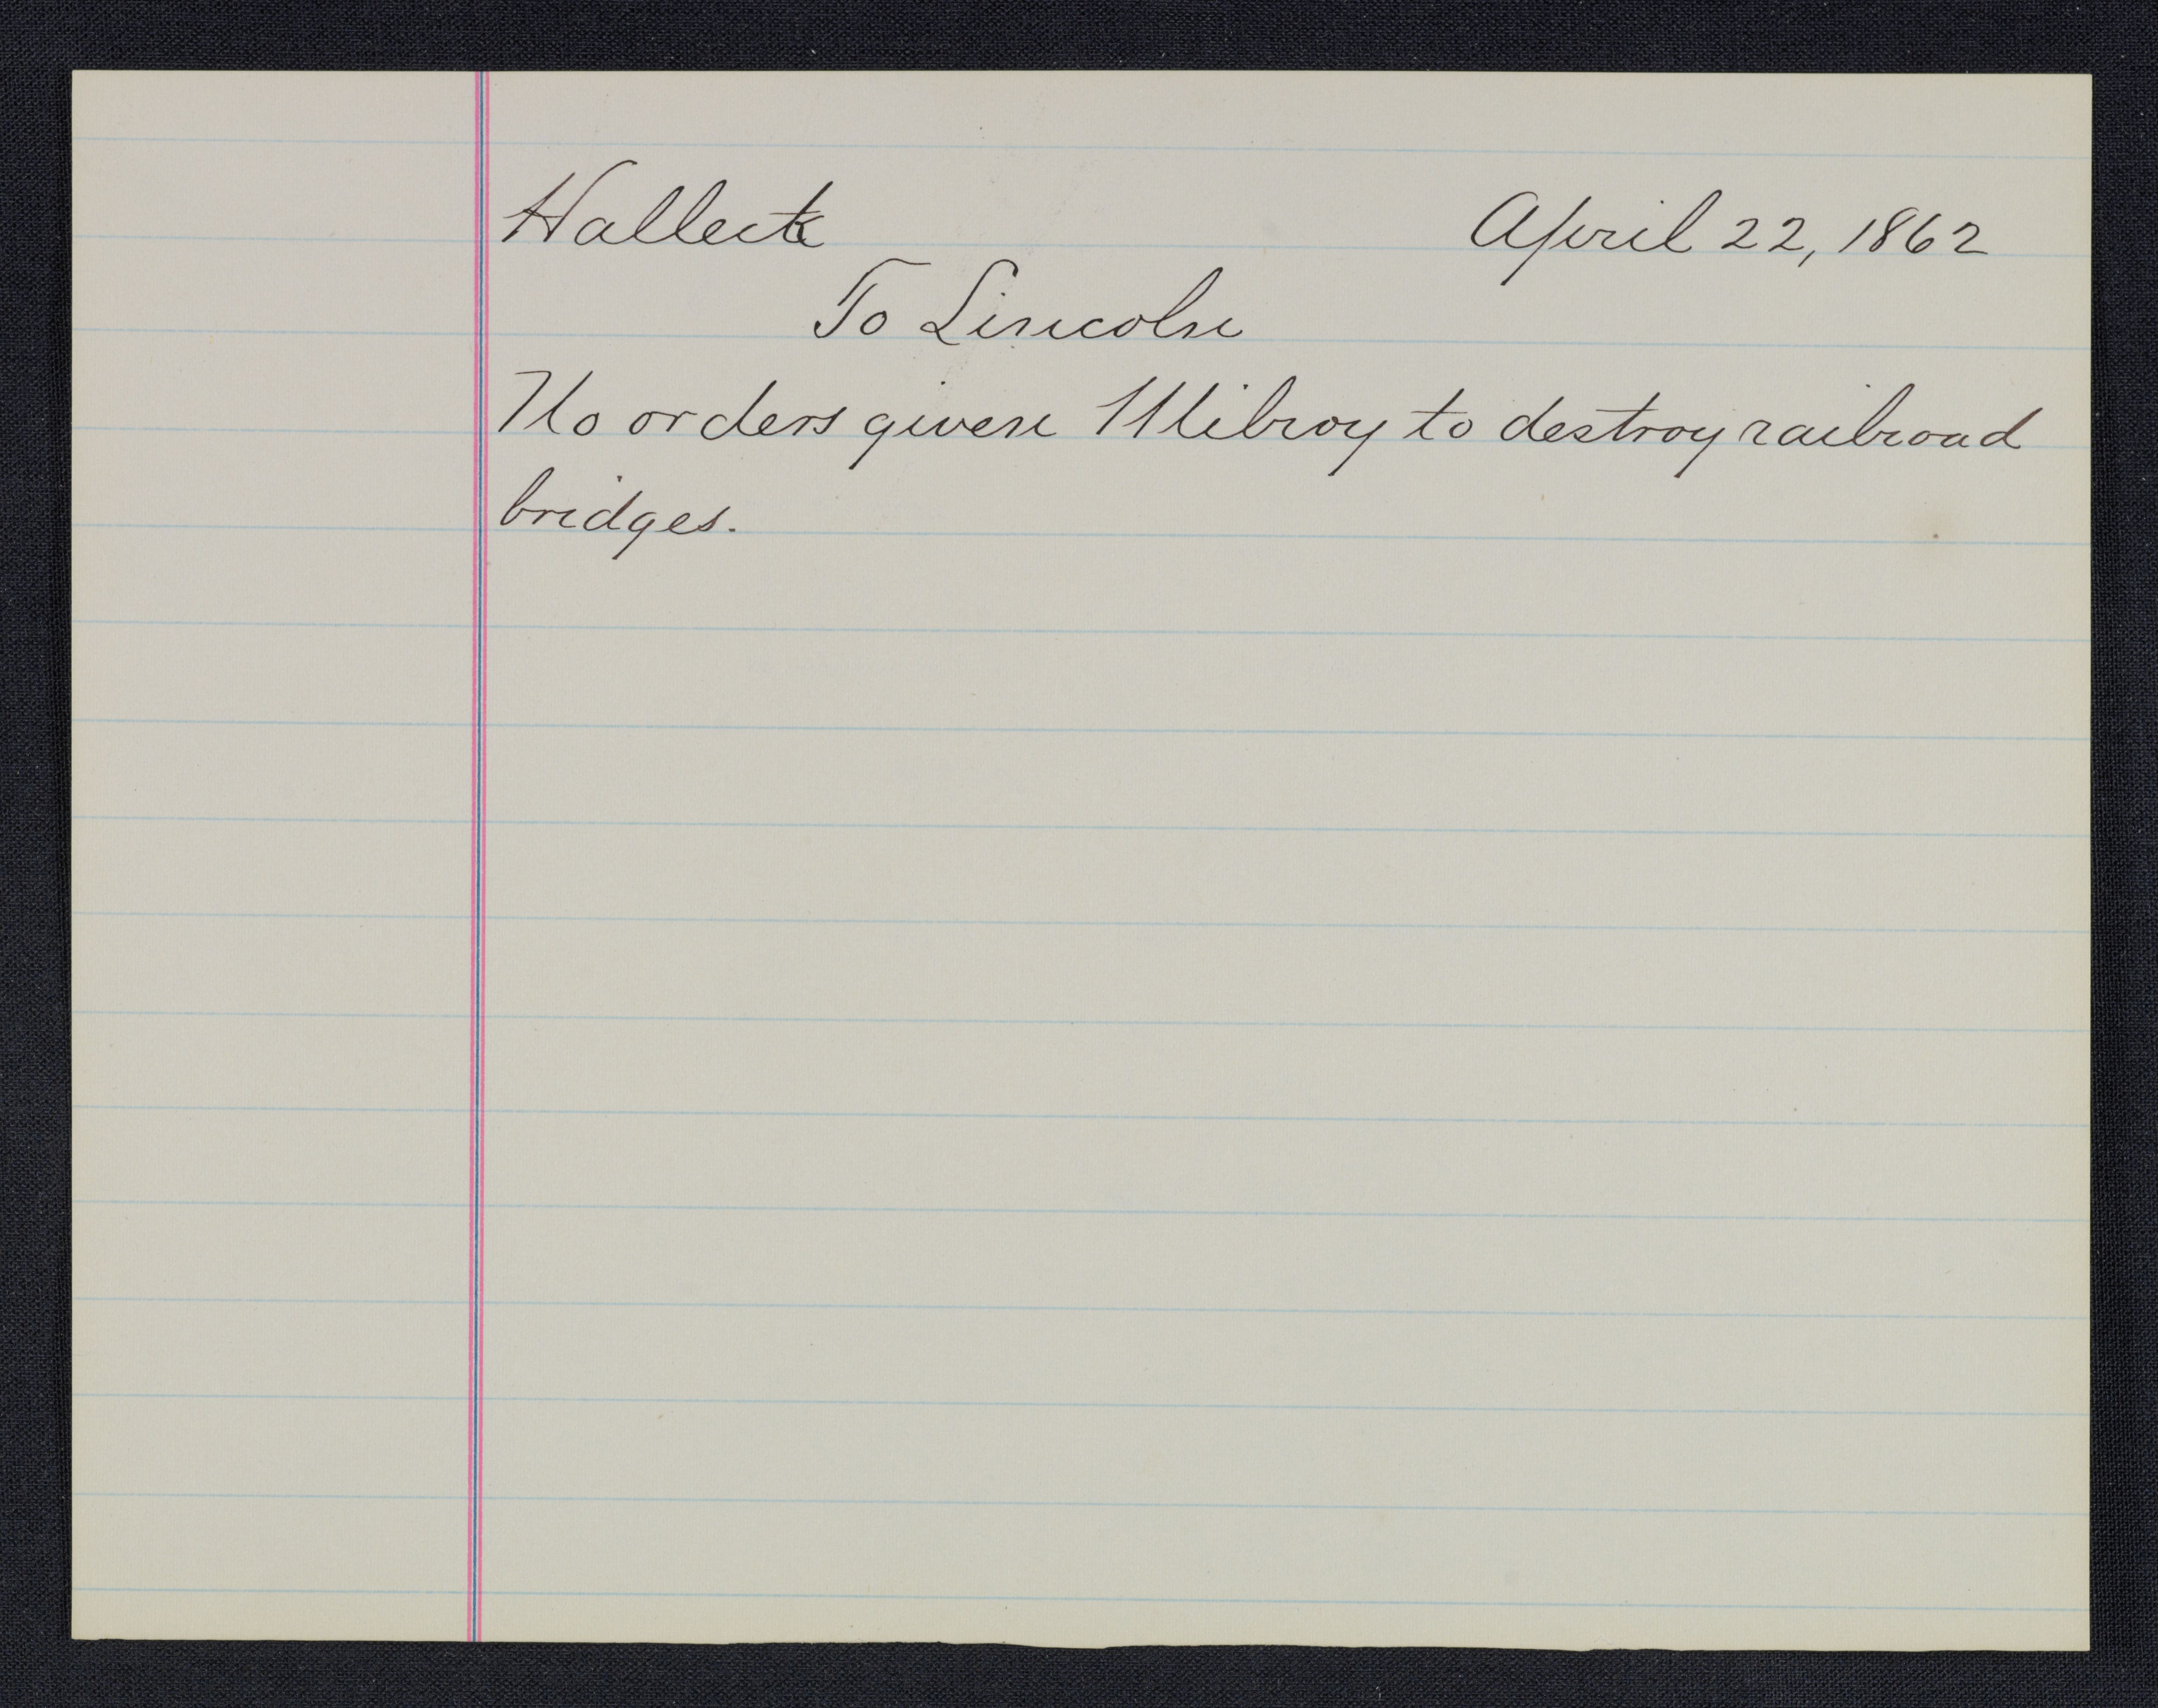 Halleck April 22, 1862
To Lincoln
No orders given Milroy to destroy railroad
bridges.